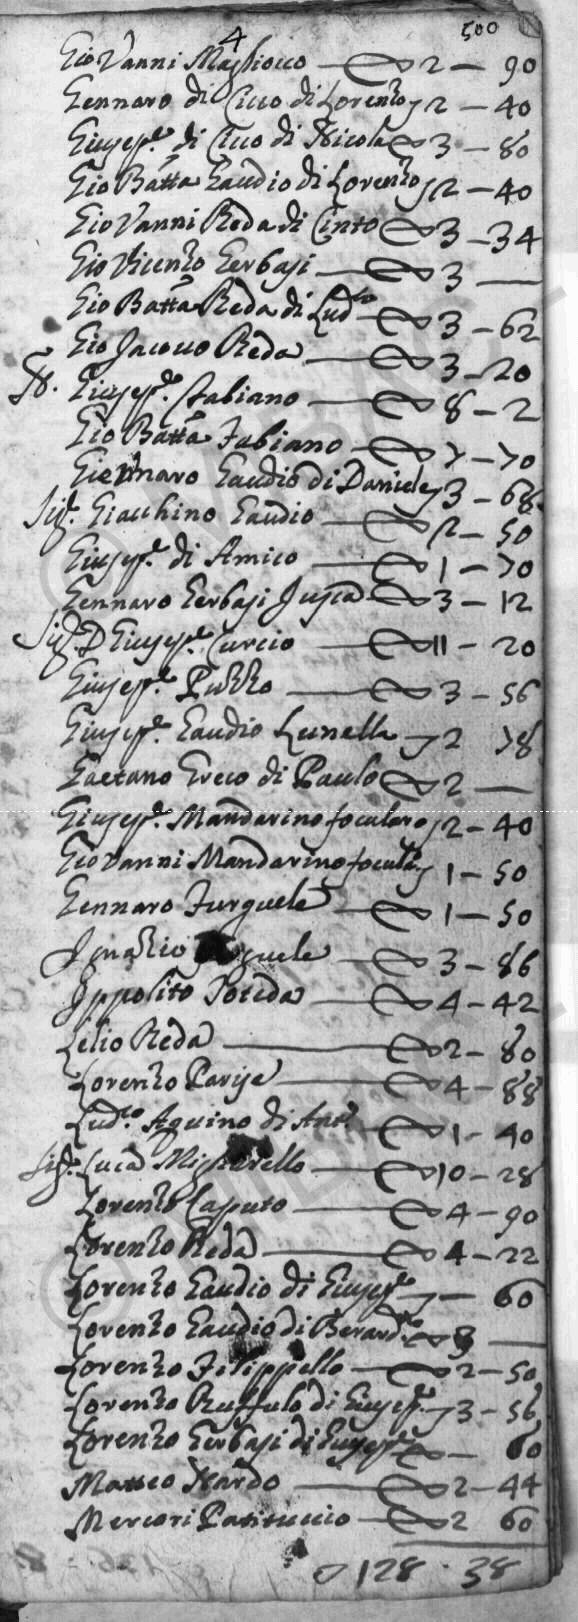 4 500
Gio Vanni Magliocco 2 — 90
Gennaro di Cicco di Lorenzo 2 — 40
Giusepe. di Cicco di Nicola 3 — 80
Gio Batta Gaudio di Lorenzo 2 — 40
Gio Vanni Reda di Cinto 3 — 34
Gio Vicenzo Gerbasi 3 —
Gio Batta Reda di Ludco 3 — 62
Gio Jacouo Reda 3 — 20
Giusepe. Fabiano 8 — 2
Gio Batta Fabiano 7 — 70
Giennaro Gaudio di Daniele 3 — 68
Sig.r Giacchino Gaudio 2 — 50
Giusepe. di Amico 1 — 70
Gennaro Gerbasi 3 — 12
Sig.r D Giusepe. Curcio 11 — 20
Giusepe. Puzzo 3 — 56
Giusepe. Gaudio Lunella 2 78
Gaetano Greco di Paulo 2 —
Giusepe. Mandarino foculero 2 — 40
Gio Vanni Mandarino 1 — 50
Gennaro Furguele 1 — 50
Ignazio 3 — 86
Ippolito Poteda 4 — 42
Lelio Reda 2 — 80
Lorenzo Parise 4 — 88
Ludco. Aquino di Anto 1 — 40
Sig.r Luca 10 — 28
Lorenzo Caputo 4 — 90
Lorenzo Reda 4 — 22
Lorenzo Gaudio di Giusepe — 60
Lorenzo Gaudio di Berardno 3 —
Lorenzo Filippello 2 — 50
Lorenzo Ruffulo di Giusepe. 3 — 56
Lorenzo Gerbasi di Giusepe — 60
Matteo Nardo 2 — 44
Mercori Patituccio 2 60
128 . 38
© MIBAC
© MIBAC